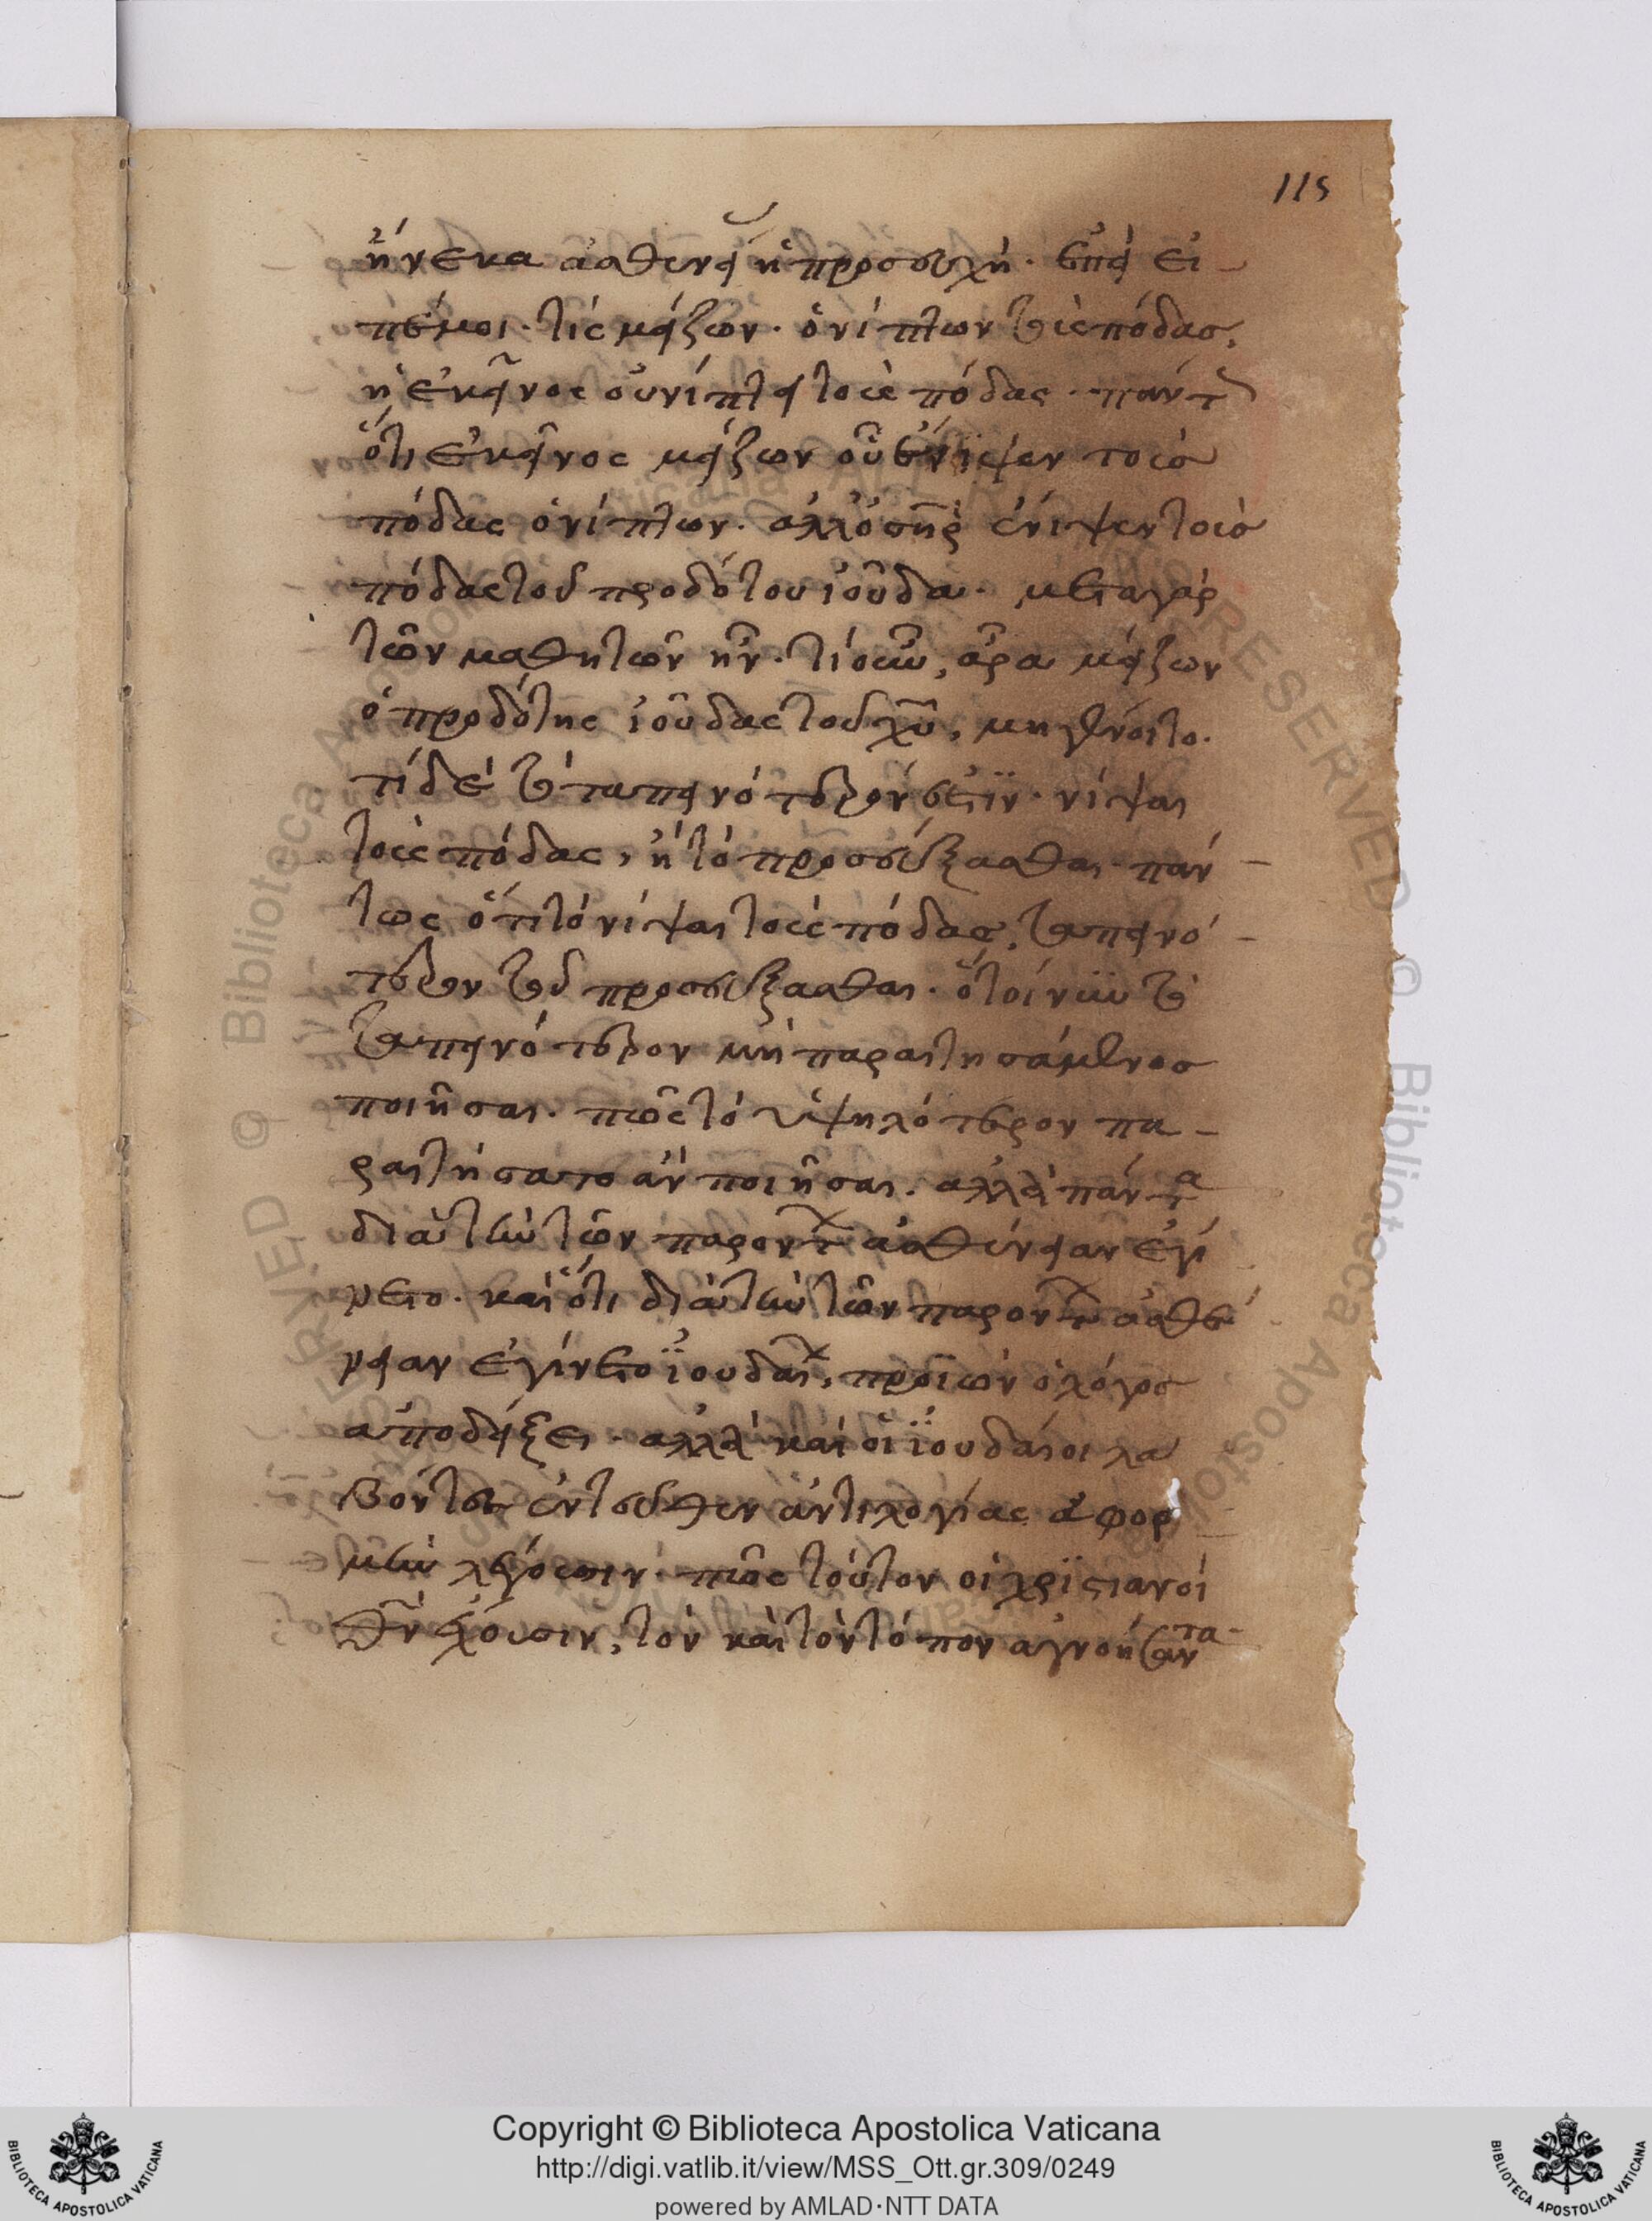 115
ἤνεκα ἀσθενεῖ ἡ προσευχή. ἐπεὶ εἰ
πέ μοι. τίς μείζων. ὁ νίπτων τοὺς πόδας,
ἢ ἐκεῖνος οὗ νίπτει τοὺς πόδας. πάντως
ὅτι ἐκεῖνος μείζων οὗ ἔνιψεν τοὺς
πόδας ὁ νίπτων. ἀλλ' ὁ σηρ ἔνιψεν τοὺς
πόδας τοῦ προδότου ἰούδα. μετα γὰρ
τῶν μαθητῶν ἦν. τί οὖν, ἆρα μείζων
ὁ προδότης ἰούδας τοῦ χυ, μη γένοιτο.
τί δὲ τὸ ταπεινότερόν ἐστϊν. νίψαι
τοὺς πόδας, ἢ τὸ προσεύξασθαι. πάν
τως ὅτι τὸ νίψαι τοὺς πόδας, ταπεινό
τερον τοῦ προσεύξασθαι. ὁ τοίνυν τὸ
ταπεινότερον μὴ παραιτησάμενος
ποιῆσαι. πῶς τὸ ὑψηλότερον πα
ραιτήσατο ἂν ποιῆσαι. ἀλλὰ πάντα
διὰ τὴν τῶν παρόντων ἀσθένειαν ἐγί
νετο. καὶ ὅτι διὰ τὴν τῶν παρόντων ἀσθέ
νειαν ἐγίνετο ϊουδαίων, προϊὼν ὁ λόγος
ἀποδείξει. ἀλλὰ καὶ οἱ ϊουδαίοι λα
βόντες ἐντεῦθεν ἀντιλογίας ἀφορ
μὴν λέγουσιν. πῶς τοῦτον οἱ χρϊστιανοί
θν ἔχουσιν, τὸν καὶ τὸν τόπον ἀγνοήσαντα
Copyright © Biblioteca Apostolica Vaticana
http://digi.vatlib.it/view/MSS_Ott.gr.309/0249
powered by AMLAD·NTT DATA